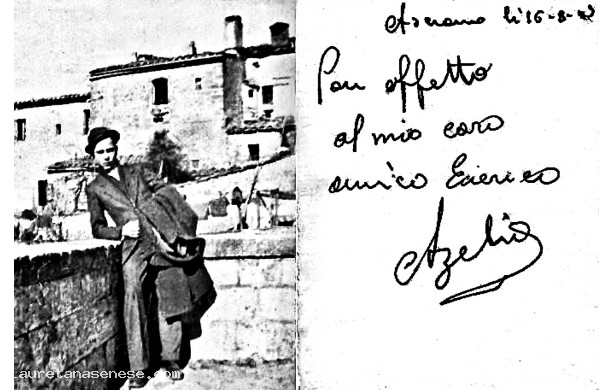 Asciano lì 16-8-42
Con affetto
al mio caro
amico Enrico
Azelio
lauretanasenese.com